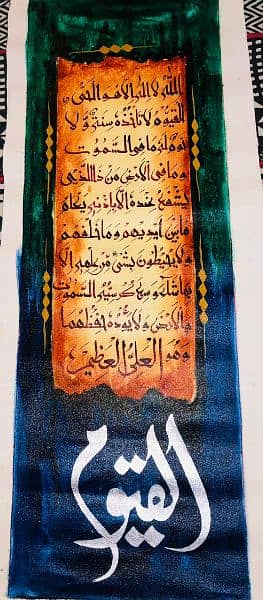 اللَّهُ لَا إِلَٰهَ إِلَّا هُوَ الْحَيُّ
الْقَيُّومُ لَا تَأْخُذُهُ سِنَةٌ وَلَا
نَوْمٌ لَهُ مَا فِي السَّمٰوٰتِ
وَمَا فِي الْأَرْضِ مَنْ ذَا الَّذِي
يَشْفَعُ عِنْدَهُ إِلَّا بِإِذْنِهِ يَعْلَمُ
مَا بَيْنَ أَيْدِيهِمْ وَمَا خَلْفَهُمْ
وَلَا يُحِيطُونَ بِشَيْءٍ مِنْ عِلْمِهِ إِلَّا
بِمَا شَاءَ وَسِعَ كُرْسِيُّهُ السَّمٰوٰتِ
وَالْأَرْضَ وَلَا يَئُودُهُ حِفْظُهُمَا
وَهُوَ الْعَلِيُّ الْعَظِيمُ
القيوم